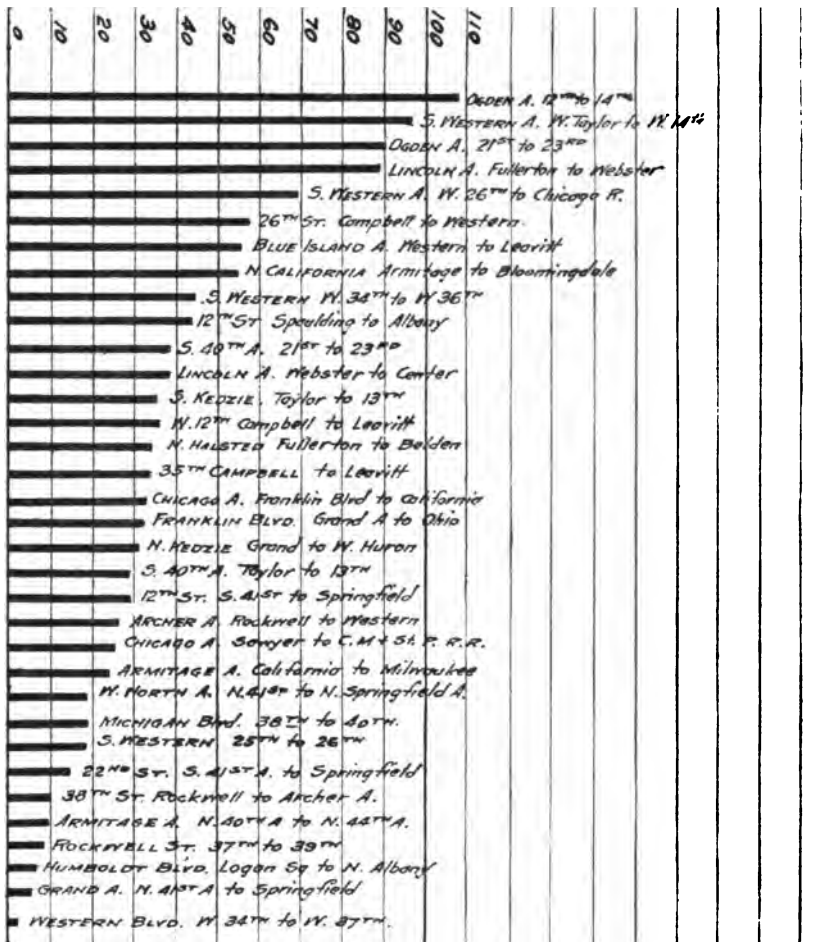 0 10 20 30 40 50 60 70 80 90 100 110
OGDEN A. 12TH to 14TH
S. WESTERN A. W. Taylor to W. 14th
OGDEN A. 21ST to 23RD
LINCOLN A. Fullerton to Webster
S. WESTERN A. W. 26TH to Chicago R.
26TH ST. Campbell to Western.
BLUE ISLAND A. Western to Leavitt
N. CALIFORNIA Armitage to Bloomingdale
S. WESTERN W. 34TH to W 36TH
12TH ST Spaulding to Albany
S. 40TH A. 21ST to 23RD
LINCOLN A. Webster to Center
S. KEDZIE. Taylor to 13TH
W. 12TH Campbell to Leavitt
N. HALSTED Fullerton to Belden
35TH CAMPBELL to Leavitt
CHICAGO A. Franklin Blvd to California
FRANKLIN BLVD. Grand A to Ohio
N. KEDZIE Grand to W. Huron
S. 40TH A. Taylor to 13TH
12TH ST. S. 41ST to Springfield
ARCHER A. Rockwell to Western
CHICAGO A. Sawyer to C. M & St. P. R. R.
ARMITAGE A. California to Milwaukee
W. NORTH A. N. 41ST to N. Springfield A.
MICHIGAN Blvd. 38TH to 40TH.
S. WESTERN 25TH to 26TH
22ND ST. S. 41ST A. to Springfield
38TH ST. Rockwell to Archer A.
ARMITAGE A. N. 40TH A to N. 44TH A.
ROCKWELL ST. 37TH to 39TH
HUMBOLDT BLVD. Logan Sq to N. Albany
GRAND A. N. 41ST A to Springfield
WESTERN BLVD. W. 34TH to W. 37TH.